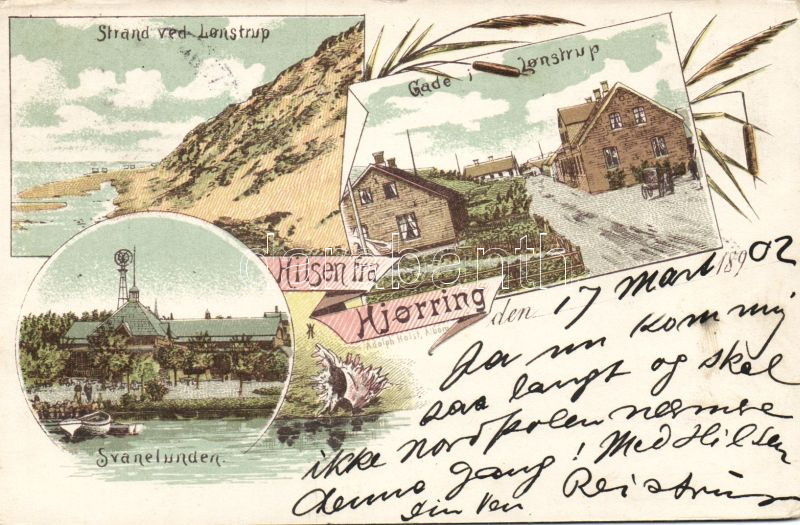 Strand ved Lønstrup
Gade i Lønstrup
Hilsen fra
Hjørring
Adolph Holst,
Svanelunden.
darabanth
den 17 Marts 1902
Ja nu kom mig
saa langt og skal
ikke nordpolen nærmere
denne gang! Med Hilsen
din Ven